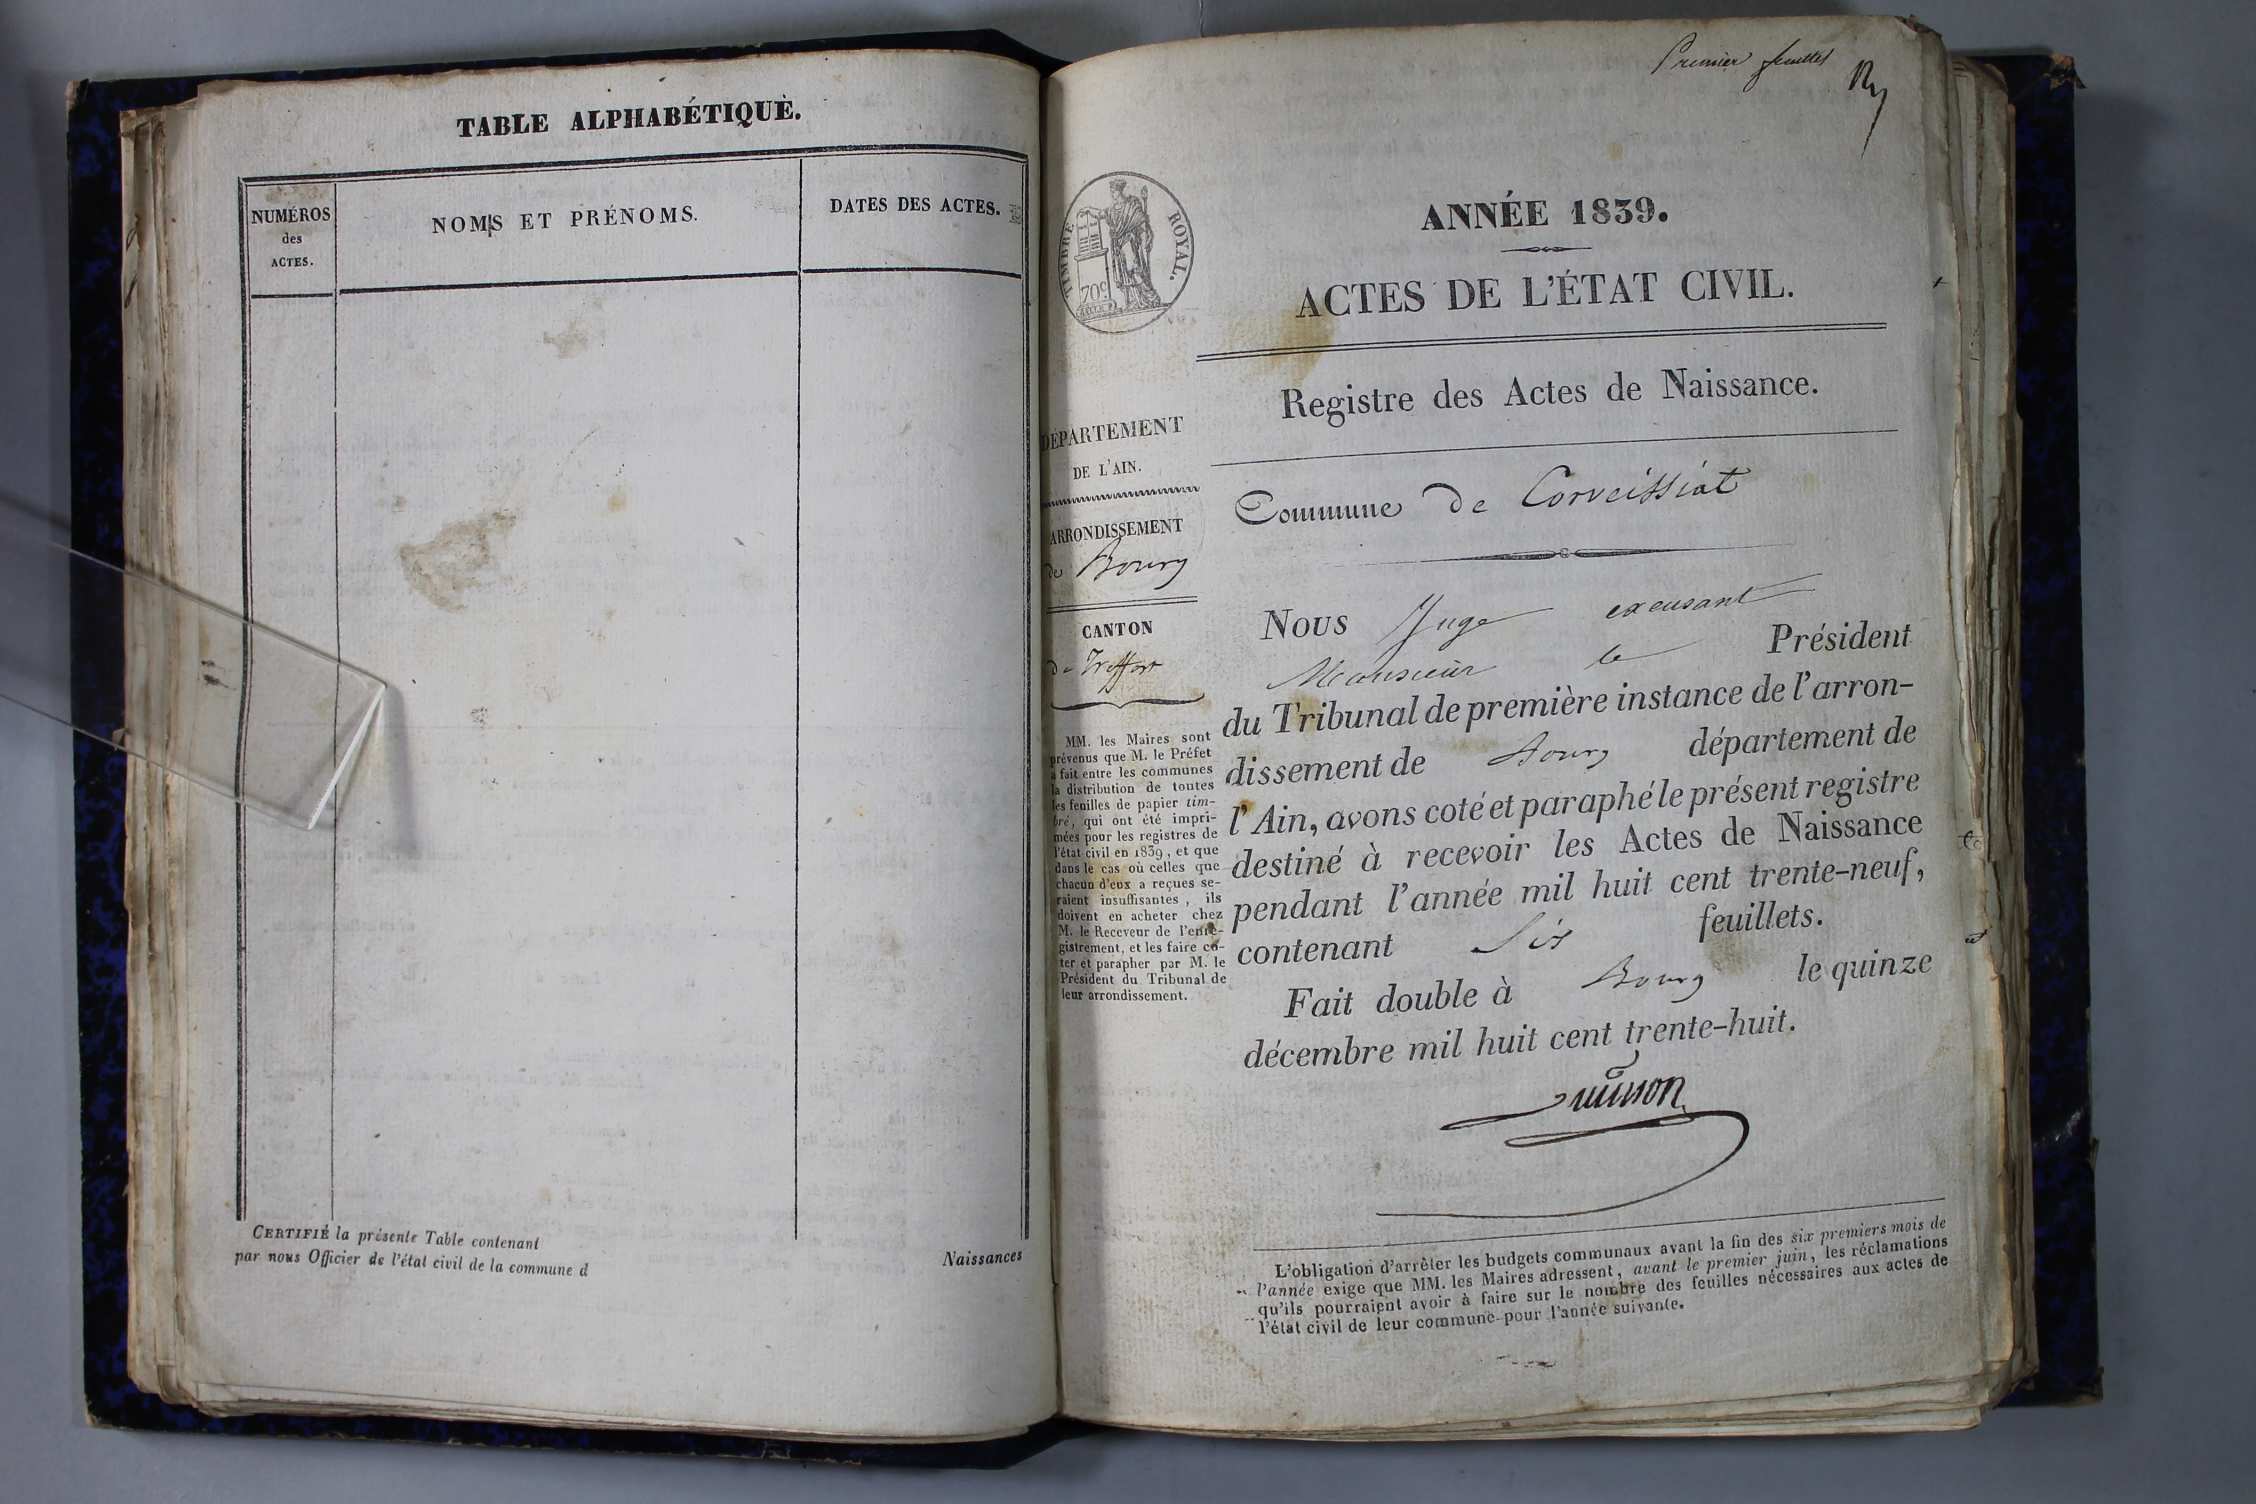 TABLE ALPHABÉTIQUE.
NUMÉROS
des
ACTES.
NOMS ET PRÉNOMS.
DATES DES ACTES.
CERTIFIÉ la présente Table contenant Naissances
par nous Officier de l'état civil de la commune d
Premier feuillet
TIMBRE ROYAL.
70c
ANNÉE 1839.
ACTES DE L'ÉTAT CIVIL.
Registre des Actes de Naissance.
DÉPARTEMENT
DE L'AIN.
ARRONDISSEMENT
de Bourg
CANTON
de Treffort
MM. les Maires sont
prévenus que M. le Préfet
a fait entre les communes
la distribution de toutes
les feuilles de papier tim-
bré, qui ont été impri-
mées pour les registres de
l'état civil en 1839, et que
dans le cas où celles que
chacun d'eux a reçues se-
raient insuffisantes, ils
doivent en acheter chez
M. le Receveur de l'enre-
gistrement, et les faire co-
ter et parapher par M. le
Président du Tribunal de
leur arrondissement.
Commune de Corveissiat
Nous Juge excusant
Monsieur le Président
du Tribunal de première instance de l'arron-
dissement de Bourg département de
l'Ain, avons coté et paraphé le présent registre
destiné à recevoir les Actes de Naissance
pendant l'année mil huit cent trente-neuf,
contenant Six feuillets.
Fait double à Bourg le quinze
décembre mil huit cent trente-huit.
L'obligation d'arrêter les budgets communaux avant la fin des six premiers mois de
l'année exige que MM. les Maires adressent, avant le premier juin, les réclamations
qu'ils pourraient avoir à faire sur le nombre des feuilles nécessaires aux actes de
l'état civil de leur commune pour l'année suivante.